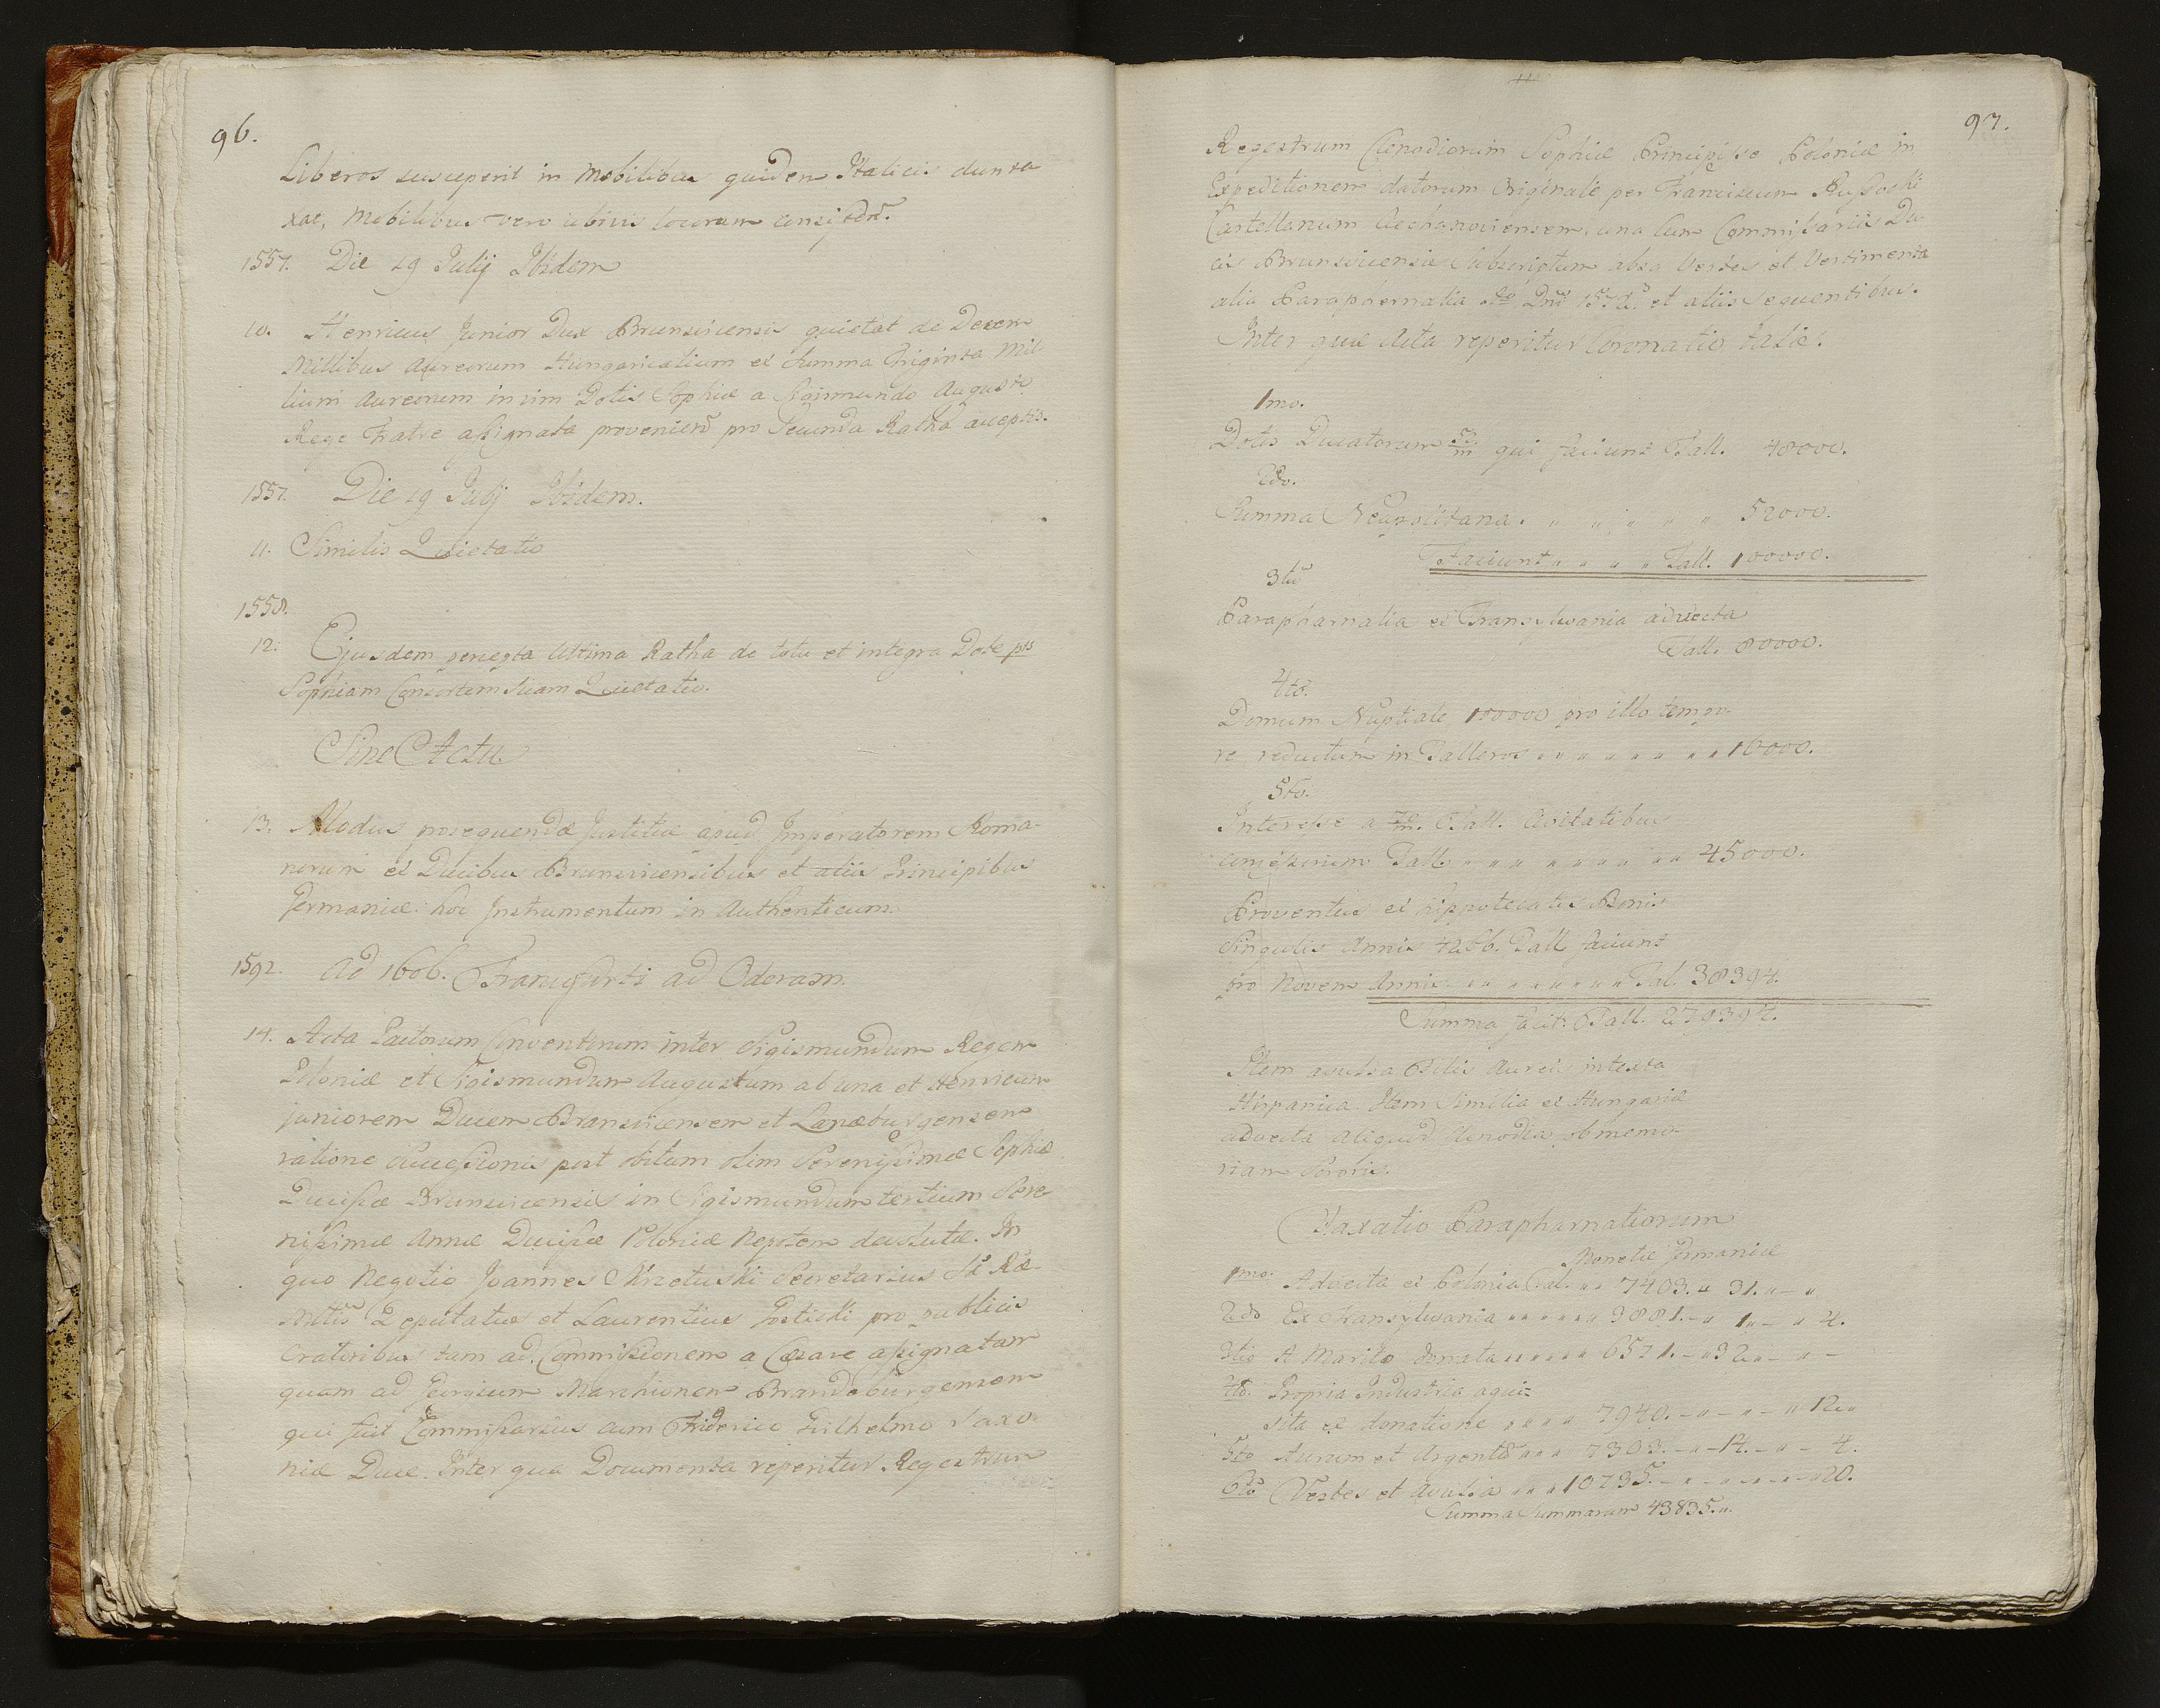 96.
Liberos susceperit in Mobilibus quidem Italicis dunta
xat, Mobilibus vero ubivis locorum
1557. Die 19 Julij Ibidem
10. Henricus Junior Dux Brunsvicensis quietat de Decem
Millibus Aureorum Hungaricalium ex Summa Triginta Mil
lium Aureorum in vim Dotis Sophiæ a Sigismundo Augusto
Rege Fratre assignata pro Secunda Ratha acceptis.
1557. Die 19 Julij Ibidem.
11. Similis Quietatio
1558.
12. Ejusdem Ultima Ratha de tota et integra Dote
Sophiam Consortem Suam Quietatio.
Sine Actu
13. Modus prosequendæ Justitiæ apud Imperatorem Roma-
norum ex Ducibus Brunsvicensibus et aliis Principibus
Germaniæ: hoc Instrumentum in Authenticum.
1592. Ad 1606. Francofurti ad Oderam.
14. Acta Pactorum Conventorum inter Sigismundum Regem
Poloniæ et Sigismundum Augustum ab una et Henricum
juniorem Ducem Brunsvicensem et Lunæburgensem
ratione successionis post obitum olim Serenissimæ Sophiæ
Ducissæ Brunsvicensis in Sigismundum tertium Sere-
nissimæ Annæ Ducissæ Poloniæ Nepotem devolutæ. In
quo Negotio Joannes Secretarius
Deputatus et Laurentius pro publicis
Oratoribus tum ad Commissionem a Cæsare assignatam
quam ad Marchionem Brandeburgensem
qui fuit Commissarius cum Friderico Gulhelmo Saxo-
niæ Duce. Inter quæ Documenta reperitur Regestrum
97.
Regestrum Clenodiorum Sophiæ Principissæ Poloniæ in
Expeditionem datorum Originale per Franciscum
Castellanum Ciechanoviensem, una cum Commissariis Du-
cis Brunsvicensis Subscriptum absq Vestes et Vestimenta
alia Paraphernalia et aliis sequentibus.
Inter quæ Acta reperitur Connotatio talis.
1mo.
Dotis Ducatorum qui faciunt Tall. 48000.
2do.
Summa Neapolitana. " " " " " " 52000.
Faciunt " " " " Tall. 100000.
3tio
Parapharnalia ex Transylwania advecta
Tall. 80000.
4to.
Domum Nuptiale 100000 pro illo tempo-
re reductum in Talleros " " " " " " " " 16000.
5to.
Interesse a Tall. Civitatibus
Tall. " " " " " " " " " 45000.
Proventus ex hippotecatis Bonis
Singulis Annis 4266. Tall. faciunt
pro Novem Annis. " " " " " " " " Tal. 38394.
Summa facit: Tall. 279394.
Item Aureis intexta
Hispanica. Item Similia ex Hungaria
advecta aliquid Clenodia ob memo-
riam Sororis.
Taxatio Parapharnationum
Monetæ Germaniæ
1mo. Advecta ex Polonia Tal. " " 7403. " 31. " - "
2do Ex Transylwania " " " " " " 3881. - " 1 " - " 4.
3tio A Marito donata " " " " " 6571. - " 32 " - " -
4to. Propria Industria aqui=
sita ex donatione " " " " 7940. - " - " - " 12 "
5to Aurum et Argentum " " " 7303. - " - 14. - " - 4.
6to Vestes et " " " 10735. - " - " - " - " 20.
Summa Summarum 43835. ".